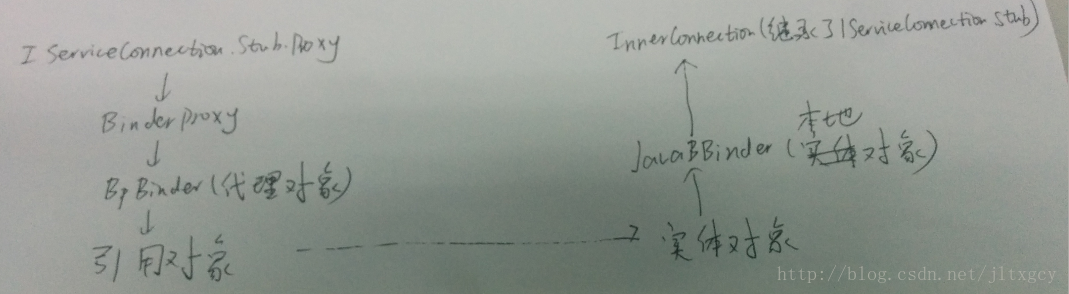 IServiceConnection.Stub.Proxy
BinderProxy
BpBinder(代理对象)
引用对象
InnerConnection(继承了IServiceConnection.Stub)
本地
JavaBBinder(实体对象)
实体对象
http://blog.csdn.net/jltxgcy